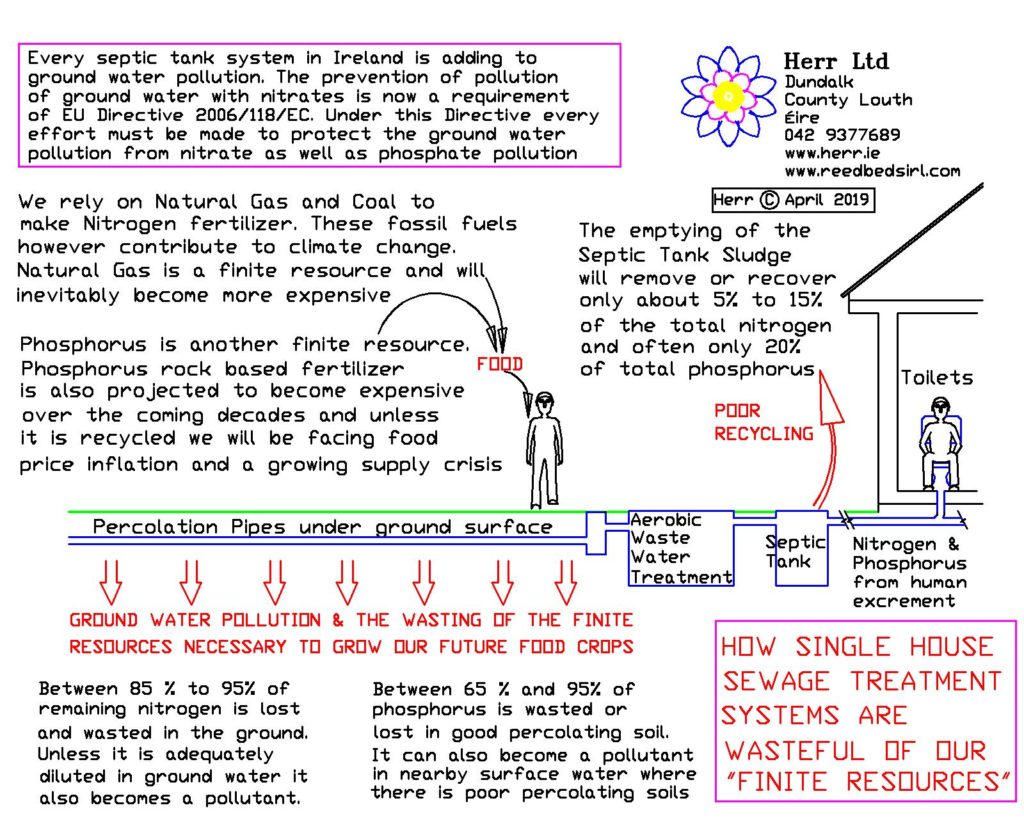 Every septic tank system in Ireland is adding to
ground water pollution. The prevention of pollution
of ground water with nitrates is now a requirement
of EU Directive 2006/118/EC. Under this Directive every
effort must be made to protect the ground water
pollution from nitrate as well as phosphate pollution
Herr Ltd
Dundalk
County Louth
Éire
042 9377689
www.herr.ie
www.reedbedsirl.com
Herr © April 2019
We rely on Natural Gas and Coal to
make Nitrogen fertilizer. These fossil fuels
however contribute to climate change.
Natural Gas is a finite resource and will
inevitably become more expensive
Phosphorus is another finite resource.
Phosphorus rock based fertilizer
is also projected to become expensive
over the coming decades and unless
it is recycled we will be facing food
price inflation and a growing supply crisis
FOOD
The emptying of the
Septic Tank Sludge
will remove or recover
only about 5% to 15%
of the total nitrogen
and often only 20%
of total phosphorus
POOR
RECYCLING
Toilets
Percolation Pipes under ground surface
Aerobic
Waste
Water
Treatment
Septic
Tank
Nitrogen &
Phosphorus
from human
excrement
GROUND WATER POLLUTION & THE WASTING OF THE FINITE
RESOURCES NECESSARY TO GROW OUR FUTURE FOOD CROPS
Between 85 % to 95% of
remaining nitrogen is lost
and wasted in the ground.
Unless it is adequately
diluted in ground water it
also becomes a pollutant.
Between 65 % and 95% of
phosphorus is wasted or
lost in good percolating soil.
It can also become a pollutant
in nearby surface water where
there is poor percolating soils
HOW SINGLE HOUSE
SEWAGE TREATMENT
SYSTEMS ARE
WASTEFUL OF OUR
"FINITE RESOURCES"